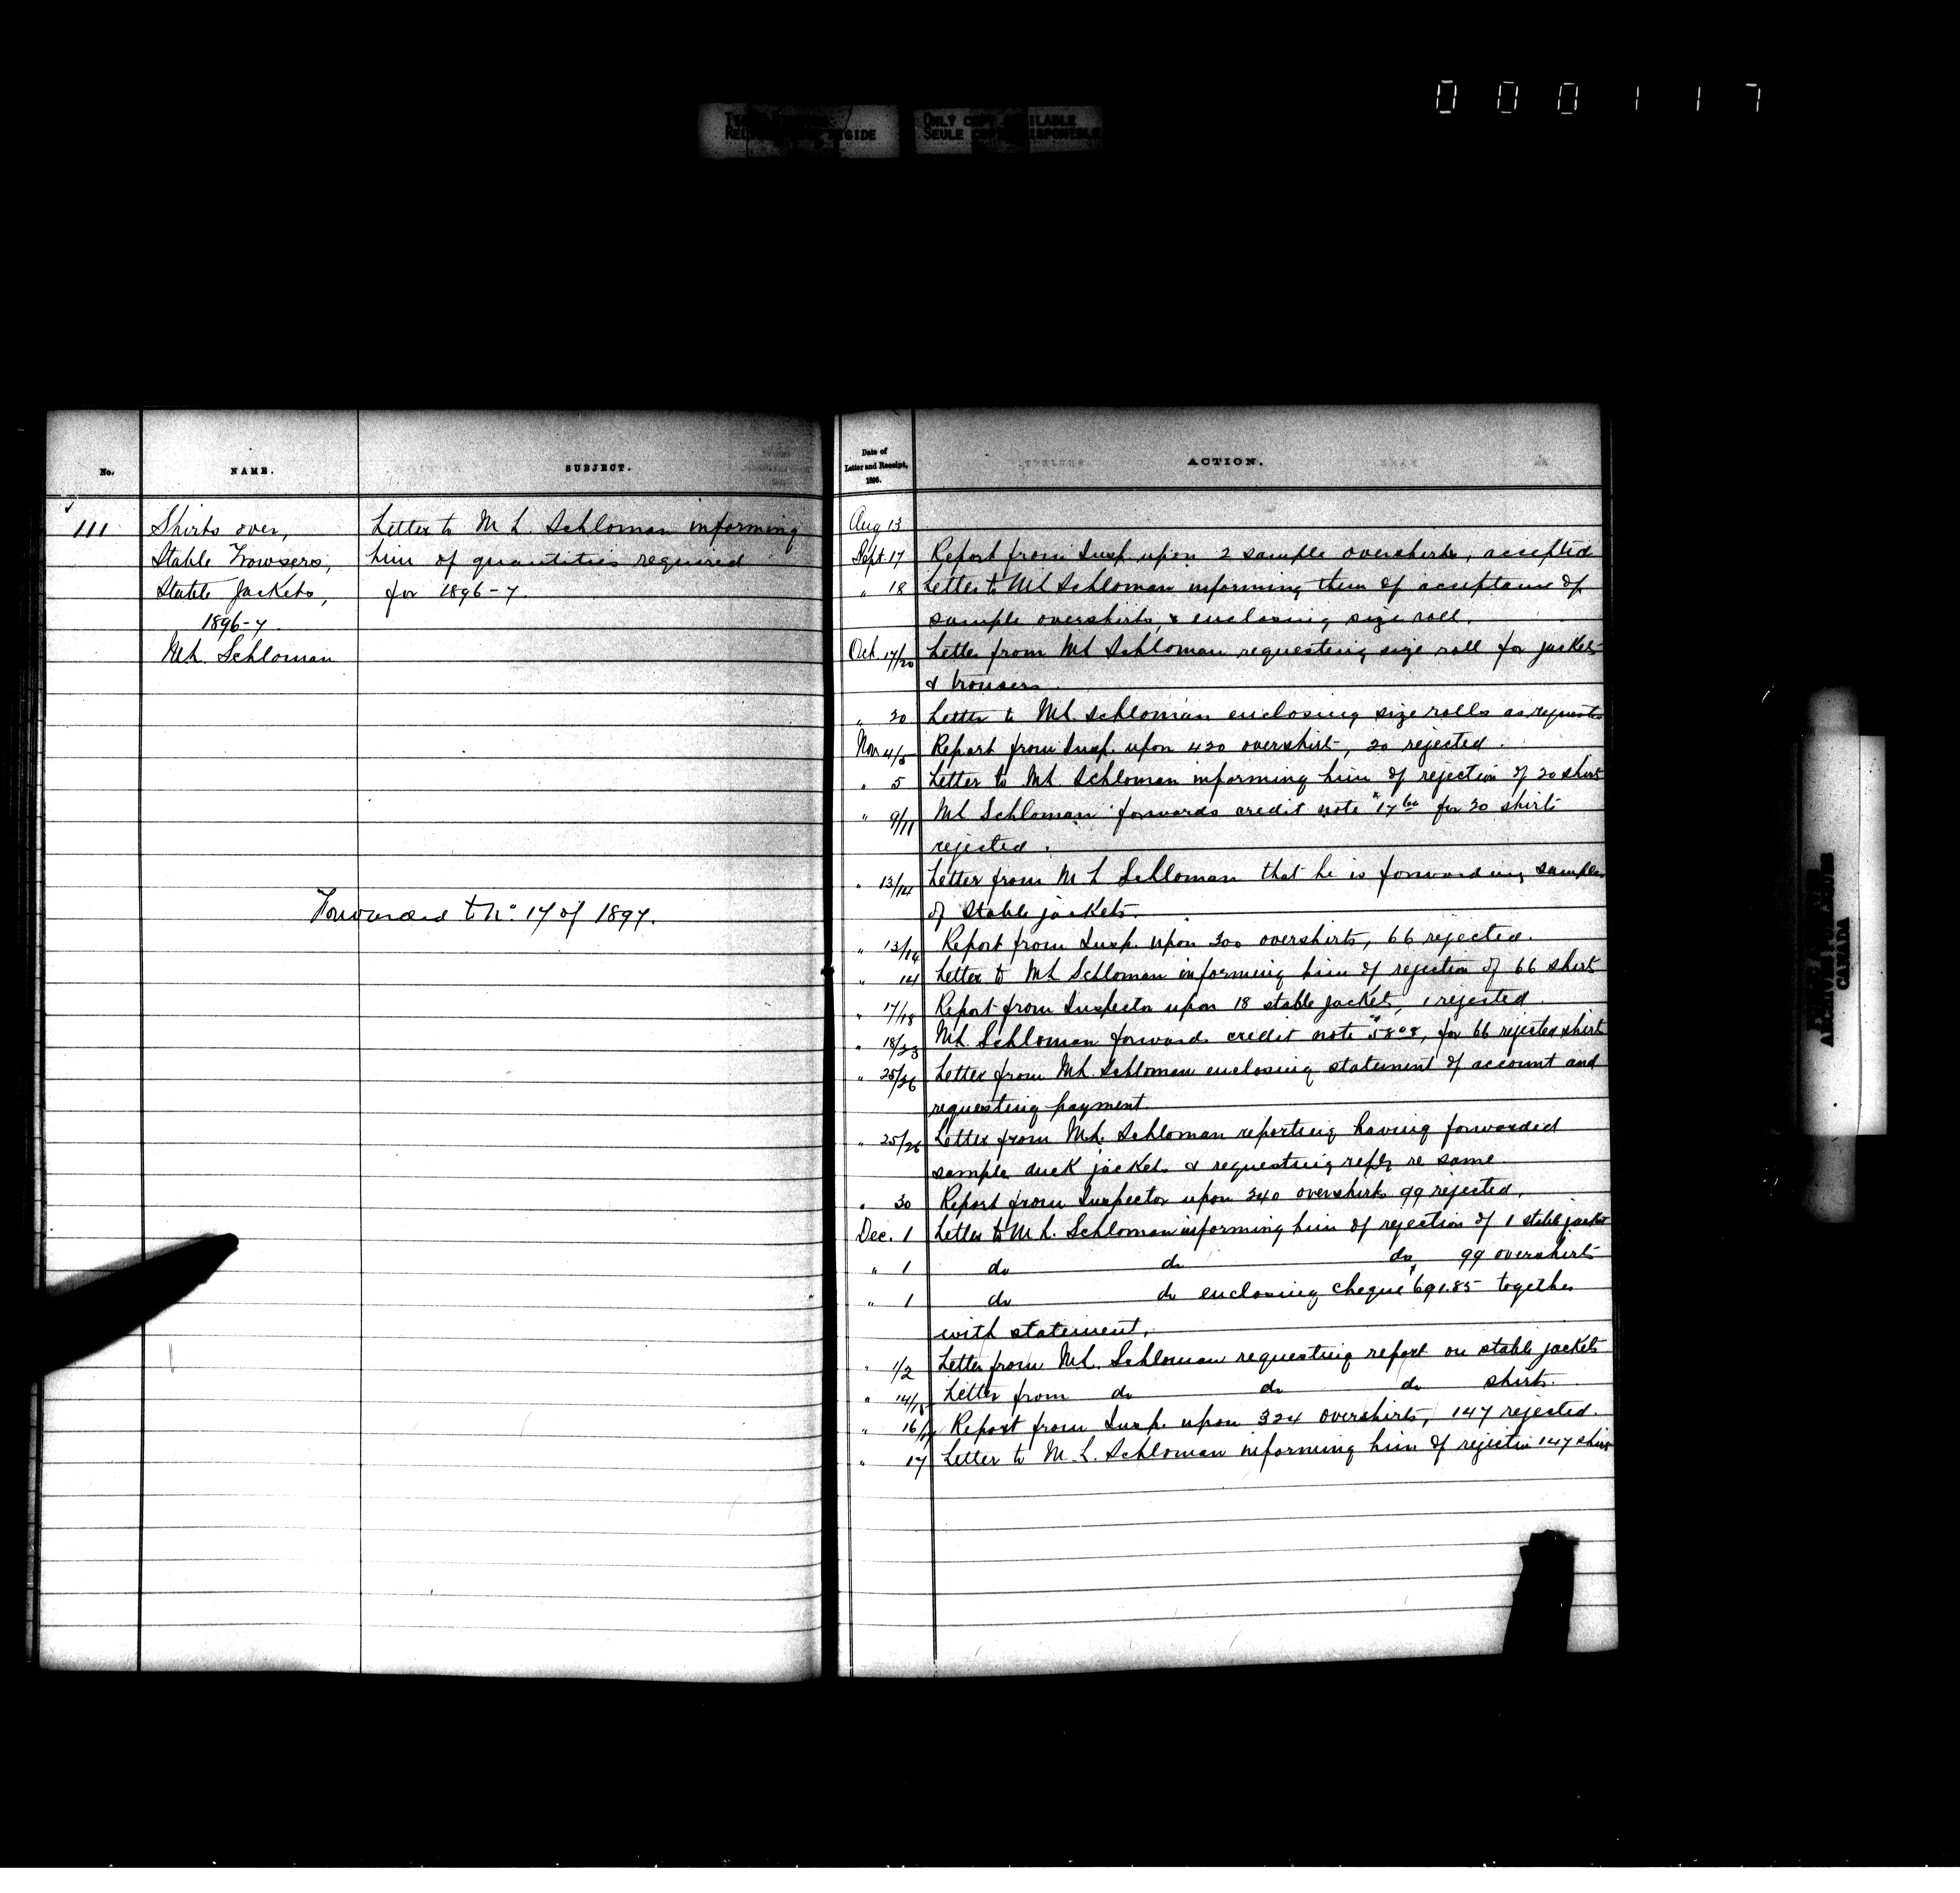 0 0 0 1 1 7
ONLY COPY AVAILABLE
SEULE COPIE DISPONIBLE
No.
NAME.
SUBJECT.
111
Shirts over,
Stable Trowsers,
Stable Jackets,
1896-7.
M L. Schloman
Letter to M L. Schloman informing
him of quantities required
for 1896-7.
Forwarded to No. 17 of 1897.
Date of
Letter and Receipt,
1896.
ACTION.
Aug 13
Sept. 17 Report from Insp. upon 2 sample overshirts, accepted
" 18 Letter to M L Schloman informing them of acceptance of
sample overshirts, & enclosing size roll.
Oct. 17/20 Letter from M L Schloman requesting size roll for jackets
& trousers.
" 20 Letter to M L. Schloman enclosing size rolls as requested
Nov 4/5 Report from Insp. upon 420 overshirts, 20 rejected.
" 5 Letter to M L Schloman informing him of rejection of 20 shirts
" 9/11 M L Schloman forwards credit note $17.60 for 20 shirts
rejected.
" 13/14 Letter from M L Schloman that he is forwarding samples
of stable jackets.
" 13/14 Report from Insp. upon 300 overshirts, 66 rejected.
" 14 Letter to M L Schloman informing him of rejection of 66 shirts
" 17/18 Report from Inspector upon 18 stable jackets, 1 rejected.
" 18/23 M L. Schloman forwards credit note $58.08, for 66 rejected shirts
" 25/26 Letter from M L. Schloman enclosing statement of account and
requesting payment
" 25/26 Letter from M L. Schloman reporting having forwarded
sample duck jackets & requesting reply re same.
" 30 Report from Inspector upon 240 overshirts 99 rejected.
Dec. 1 Letter to M L. Schloman informing him of rejection of 1 stable jacket
" 1 do do do 99 overshirts
" 1 do do enclosing cheque $691.85 together
with statement.
" 1/2 Letter from M L. Schloman requesting report on stable jackets
" 14/15 Letter from do do do shirts.
" 16/17 Report from Insp. upon 324 overshirts, 147 rejected.
" 17 Letter to M. L. Schloman informing him of rejection 147 shirts
ARCHIVES
CANADA